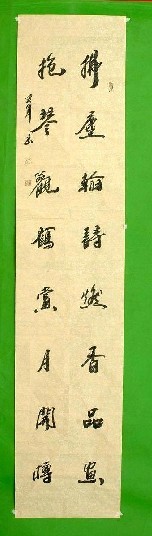 拂塵翰詩燃香品画
抱琴觀鶴賞月開樽